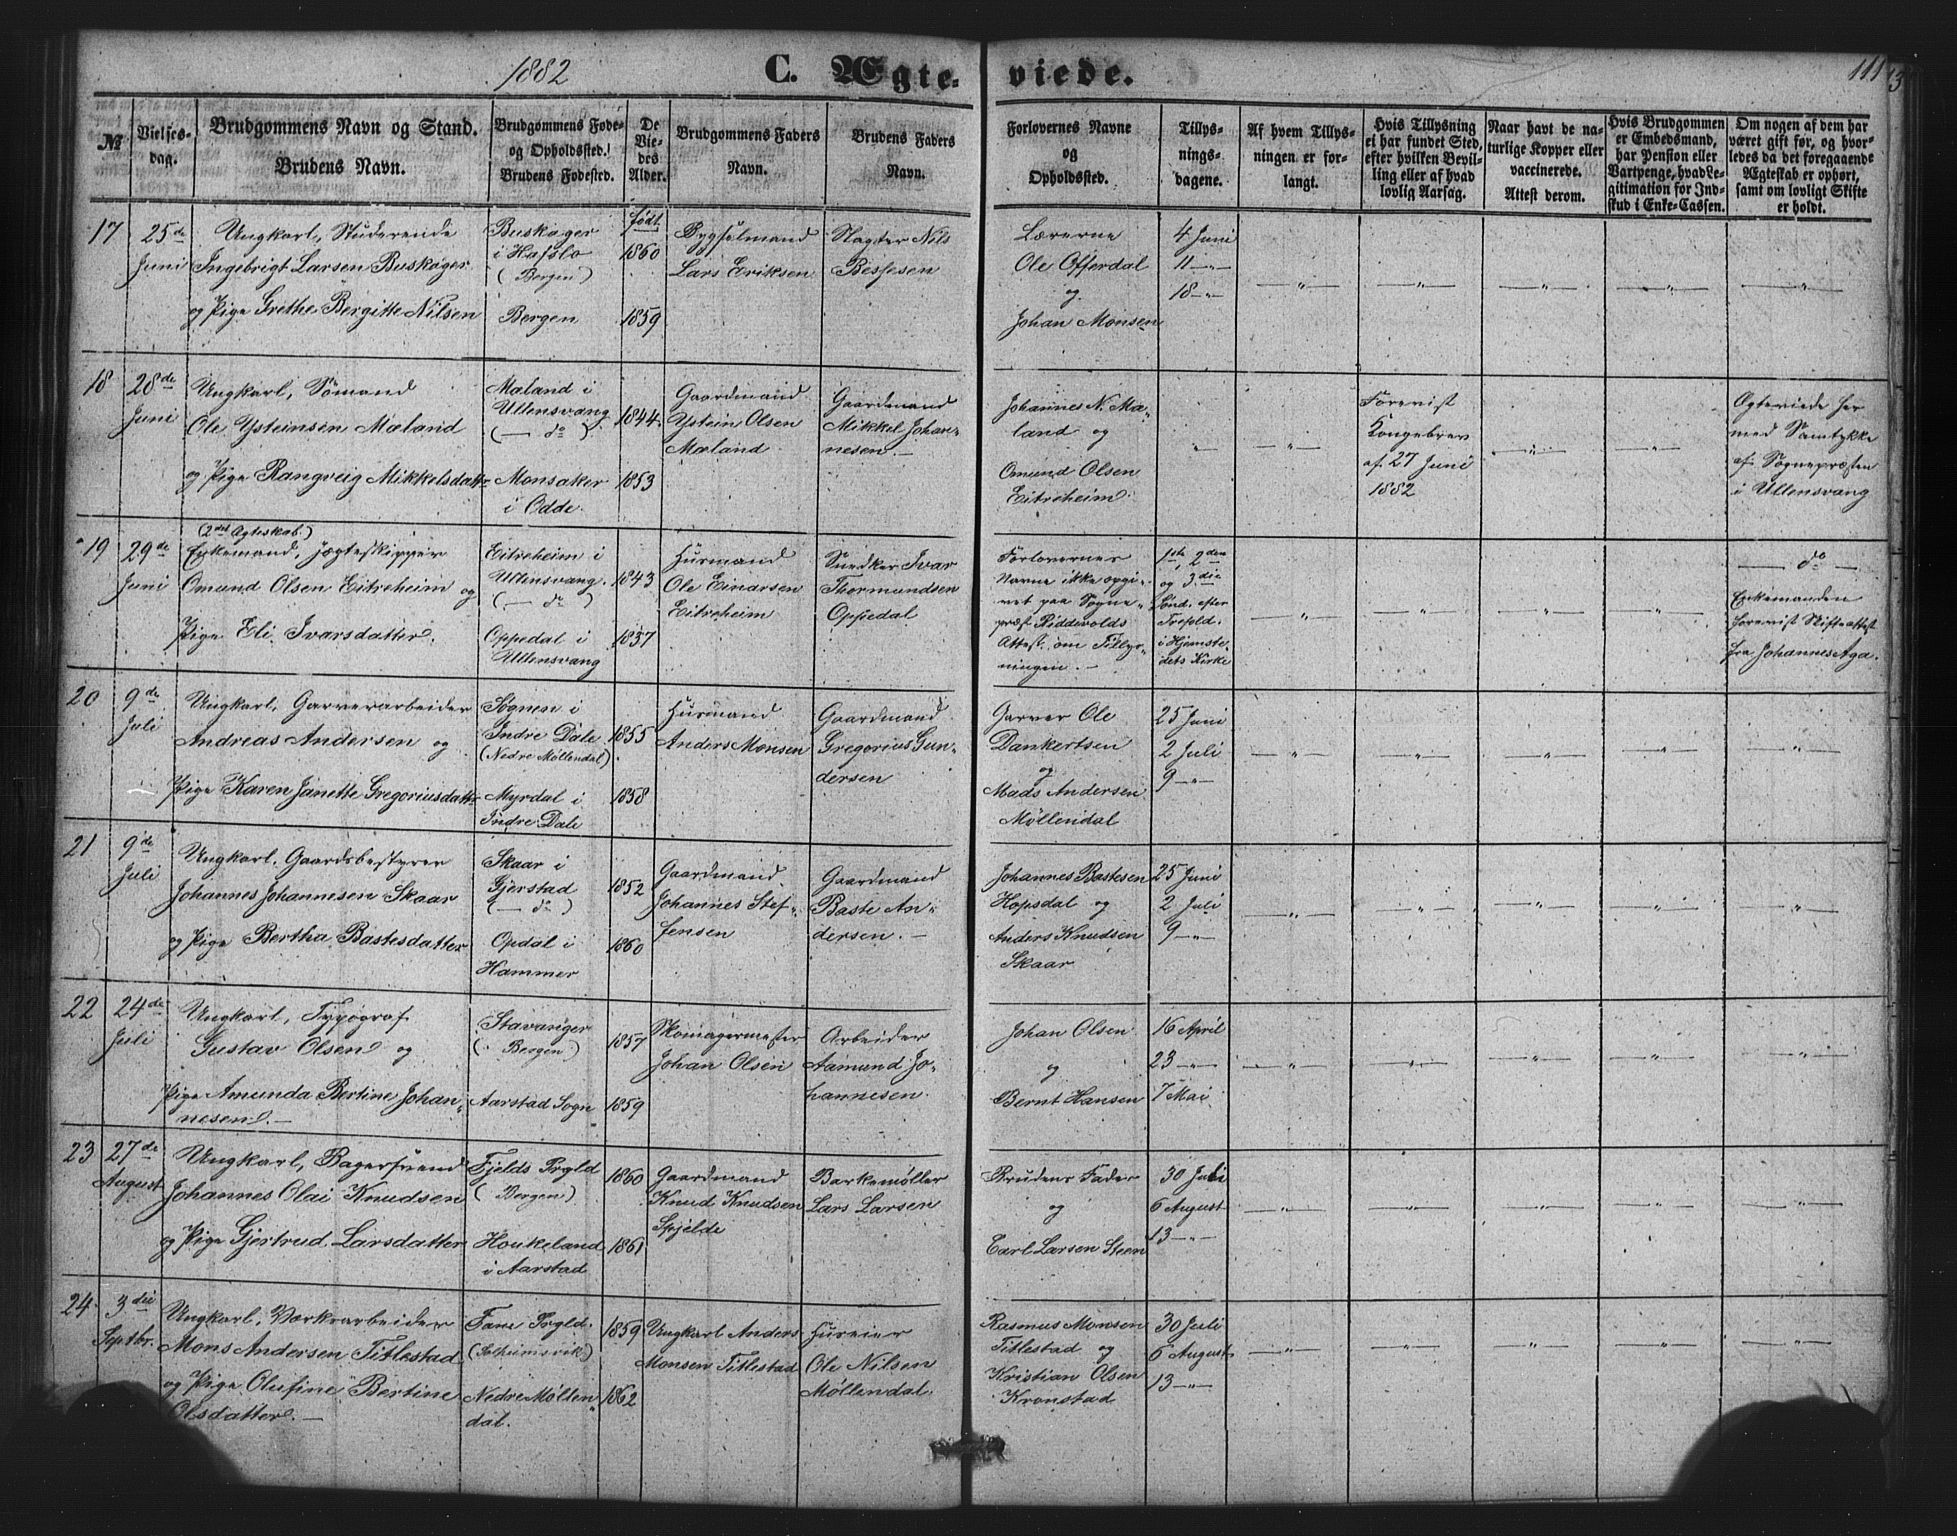 1882
C. Ægte-
viede.
111
№
Vielses-
dag.
Brudgommens Navn og Stand.
Brudens Navn.
Brudgommens Føde-
og Opholdssted.
Brudens Fødested.
De
Vie-
des
Alder.
Brudgommens Faders
Navn.
Brudens Faders
Navn.
Forlovernes Navne
og
Opholdssted.
Tillys-
nings-
dagene.
Af hvem Tillys-
ningen er for-
langt.
Hvis Tillysning
ei har fundet Sted,
efter hvilken Bevil-
ling eller af hvad
lovlig Aarsag.
Naar havt de na-
turlige Kopper eller
vaccinerede.
Attest derom.
Hvis Brudgommen
er Embedsmand,
har Pension eller
Vartpenge, hvad Le-
gitimation for Ind-
skud i Enke-Cassen.
Om nogen af dem har
været gift før, og hvor-
ledes da det foregaaende
Ægteskab er ophørt,
samt om lovligt Skifte
er holdt.
17
25de
Juni
Ungkarl, Studerende
Ingebrigt Larsen Buskøger
og Pige Grethe Bergitte Nilsen
Buskøger
i Hafslo
(Bergen)
Bergen
født
1860
1859
Bygselmand
Lars Eriksen
Slagter Nils
Bessesen
Lærerne
Ole Offerdal
og
Johan Monsen
4 Juni
11 -"-
18 -"-
18
28de
Juni
Ungkarl, Sømand
Ole Ysteinsen Mæland
og Pige Rangveig Mikkelsdatter
Mæland i
Ullensvang
(— do)
Monsaker
i Odde.
1844
1853
Gaardmand
Ystein Olsen
Mæland
Gaardmand
Mikkel Johan-
nesen.—
Johannes N. Mæ-
land og
Omund Olsen
Eitreheim.
Forevist
Kongebrev
af 27 Juni
1882
Ægteviede her
med Samtykke
af Sognepræsten
i Ullensvang
19
29de
Juni
(2det Ægteskab.)
Enkemand, Jægteskipper
Omund Olsen Eitreheim og
Pige Eli Ivarsdatter.
Eitreheim i
Ullensvang.
(— do)
Oppedal i
Ullensvang
1843
1857
Husmand
Ole Einarsen
Eitreheim
Snedker Ivar
Thormundsen
Oppedal
Forlovernes
Navne ikke opgi-
vet paa Sogne-
præst Ridderolds
Attest om Tillys-
ningen.—
1ste, 2den
og 3die
Sønd. efter
Trefold.
i Hjemste-
dets Kirke
— do —
Enkemanden
forevist Skifteattest
fra Johannes Aga.
20
9de
Juli
Ungkarl, Garverarbeider
Andreas Andersen og
Pige Karen Janette Gregoriusdatter
Søgnen i
Indre Dale
(Nedre Møllendal)
Myrdal i
Indre Dale
1855
1858
Husmand
Anders Monsen
Gaardmand
Gregorius Gun-
dersen
Garver Ole
Dankertsen
og
Mads Andersen
Møllendal
25 Juni
2 Juli
9 -"-
21
9de
Juli
Ungkarl, Gaardsbestyrer
Johannes Johannesen Skaar
og Pige Bertha Bastesdatter
Skaar i
Gjerstad
(— do)
Opdal i
Hammer
1852
1860
Gaardmand
Johannes Stef-
fensen
Gaardmand
Baste An-
dersen.—
Johannes Bastesen
Hopsdal og
Anders Knudsen
Skaar
25 Juni
2 Juli
9 -"-
22
24de
Juli
Ungkarl, Typograf
Gustav Olsen og
Pige Amunda Bertine Johan-
nesen.—
Stavanger
(Bergen)
Aarstad Sogn
1857
1859
Skomagermester
Johan Olsen
Arbeider
Aamund Jo-
hannesen.
Johan Olsen
og
Bernt Hansen
16 April
23 -"-
7 Mai
23
27de
August
Ungkarl, Bagersvend
Johannes Olai Knudsen
og Pige Gjertrud Larsdatter
Fjelds Prgld
(Bergen)
Houkeland
i Aarstad
1860
1861
Gaardmand
Knud Knudsen
Spjelde
Barkemøller
Lars Larsen
Brudens Fader
og
Carl Larsen Steen
30 Juli
6 August
13 -"-
24
3die
Septbr.
Ungkarl, Værksarbeider
Mons Andersen Titlestad
og Pige Olufine Bertine
Olsdatter.—
Fane Prgld.
(Solheimsvik)
Nedre Møllen-
dal.
1859
1862
Ungkarl Anders
Monsen Titlestad
Huseier
Ole Nilsen
Møllendal.
Rasmus Monsen
Titlestad og
Kristian Olsen
Kronstad
30 Juli
6 August
13 -"-